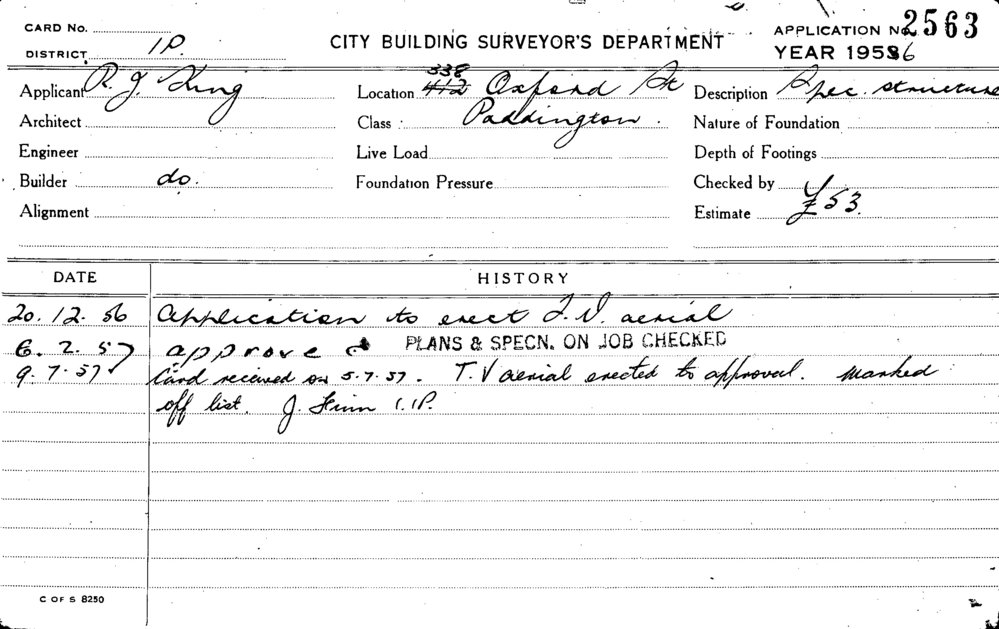 CARD No.
DISTRICT 1P.
CITY BUILDING SURVEYOR'S DEPARTMENT
APPLICATION No. 2563
YEAR 19556
Applicant R. J. King
Location 412 338 Oxford St
Description Spec. structure
Architect
Class : Paddington.
Nature of Foundation
Engineer
Live Load
Depth of Footings
Builder do.
Foundation Pressure
Checked by
Alignment
Estimate £53.
DATE
HISTORY
20.12.56 Application to erect T.V. aerial
6.2.57 approved PLANS & SPECN. ON JOB CHECKED
9.7.57 Card received on 5.7.57. T.V aerial erected to approval. Marked
off list. J. 1.1P.
C OF S 8250